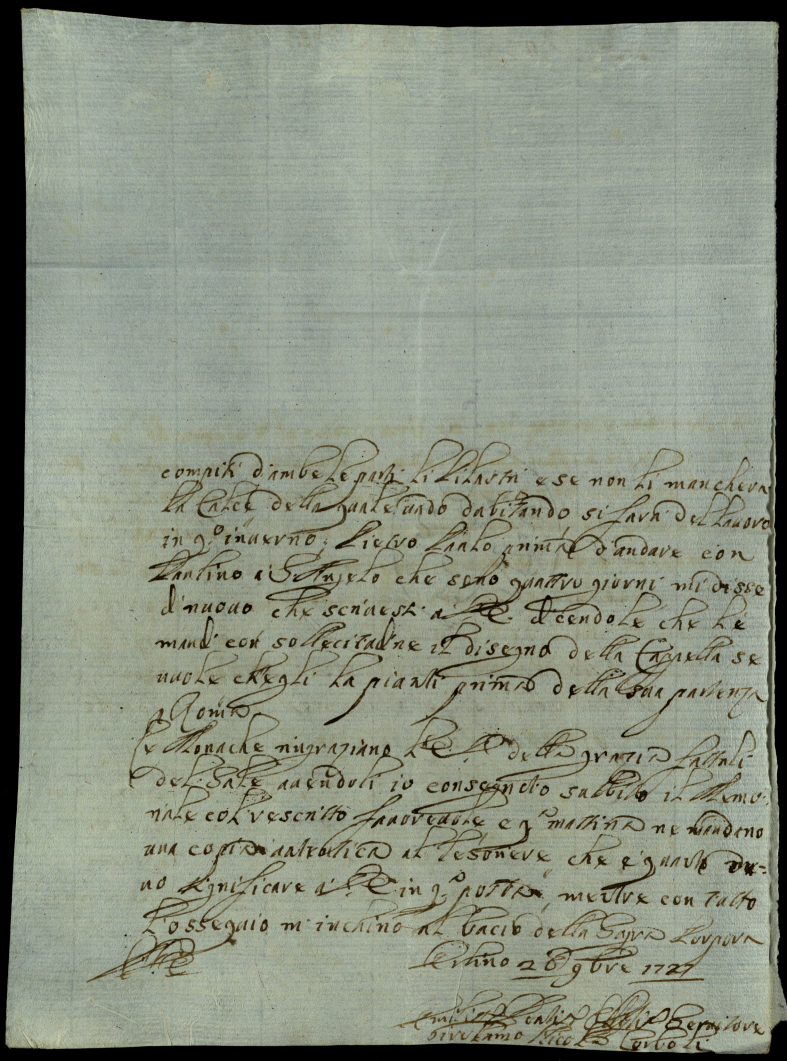 compiti d'ambe le parti li Pilastri e se non li mancherà
la Calce della quale vado dubitando si farà del lavoro
in q.o inverno; Pietro Paolo prima d'andare con
Paulino a S. Angelo che sono quattro giorni mi disse
di nuovo che scrivessi a V.E. dicendole che le
mandi con sollecitudine il disegno della Cappella se
vuole ch'egli la pianti prima della sua partenza
a Roma
Le Monache ringraziano V.E. della grazia fattali
del Sale avendoli io consegnato subbito il Memo-
riale col rescritto favorevole e q.a mattina ne mandano
una copia autentica al Tesoriere che è quanto de-
vo significare a V.E. in q.a posta, mentre con tutto
l'ossequio m'inchino al bacio della Sagra Porpora
V.E. Urbino 26 9bre 1727
Servitore
Girolamo Nicolò Corboli